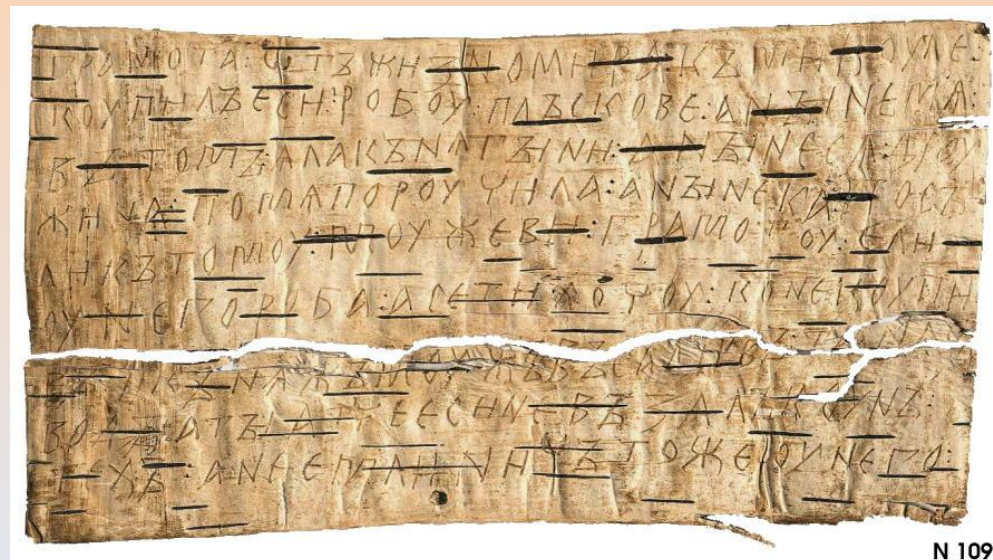 грамота : ѡтъ жизномира : къ микоуле :
коупилъ еси : робоу : плъскове : а ныне мѧ :
въ томъ : ѧла кънѧгыни : а ныне сѧ дроу
жина : по мѧ пороучила : а ныне ка : посъ
ли къ томоу : моужеви : грамотоу : ели
оу него роба : а се ти хочоу : коне коупи
въ : и кънѧжъ моужъ въсадивъ : та на съ
воды : а ты атче еси не възалъ коунъ :
техъ : а не емли : ничъто же оу него :
N 109